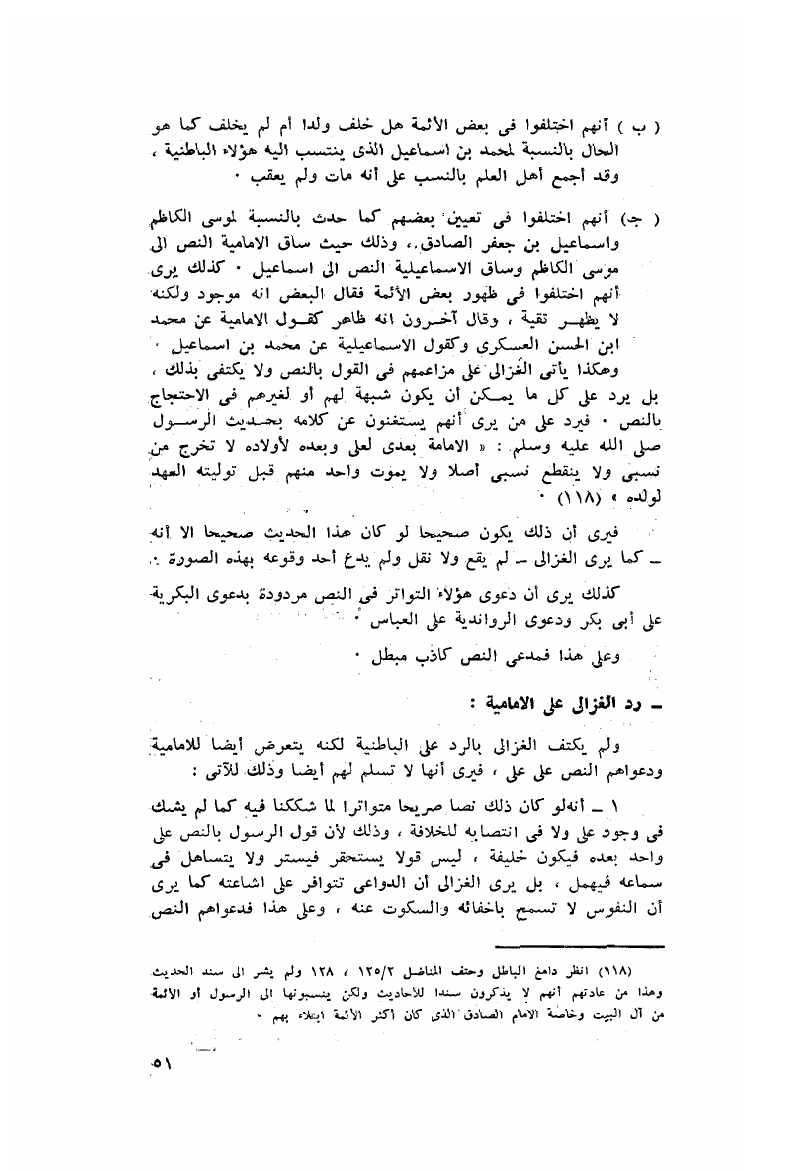 ( ب ) أنهم اختلفوا فى بعض الأئمة هل خلف ولدا أم لم يخلف كما هو
الحال بالنسبة لمحمد بن اسماعيل الذى ينتسب اليه هؤلاء الباطنية ،
وقد أجمع أهل العلم بالنسب على أنه مات ولم يعقب ٠
( جـ) أنهم اختلفوا فى تعيين بعضهم كما حدث بالنسبة لموسى الكاظم
واسماعيل بن جعفر الصادق ، وذلك حيث ساق الامامية النص الى
موسى الكاظم وساق الاسماعيلية النص الى اسماعيل ٠ كذلك يرى
أنهم اختلفوا فى ظهور بعض الأئمة فقال البعض انه موجود ولكنه
لا يظهـر تقية ، وقال آخـرون انه ظاهر كقـول الامامية عن محمد
ابن الحسن العسكرى وكقول الاسماعيلية عن محمد بن اسماعيل ٠
وهكذا يأتى الغزالى على مزاعمهم فى القول بالنص ولا يكتفى بذلك ،
بل يرد على كل ما يمـكن أن يكون شبهة لهم أو لغيرهم فى الاحتجاج
بالنص ٠ فيرد على من يرى أنهم يستغنون عن كلامه بحـديث الرسـول
صلى الله عليه وسلم : « الامامة بعدى لعلى وبعده لأولاده لا تخرج من
نسبى ولا ينقطع نسبى أصلا ولا يموت واحد منهم قبل توليته العهد
لولده » (١١٨) ٠
فيرى أن ذلك يكون صحيحا لو كان هذا الحديث صحيحا الا أنه
ـ كما يرى الغزالى ـ لم يقع ولا نقل ولم يدع أحد وقوعه بهذه الصورة ٠
كذلك يرى أن دعوى هؤلاء التواتر فى النص مردودة بدعوى البكرية
على أبى بكر ودعوى الرواندية على العباس ٠
وعلى هذا فمدعى النص كاذب مبطل ٠
ـ رد الغزالى على الامامية :
ولم يكتف الغزالى بالرد على الباطنية لكنه يتعرض أيضا للامامية
ودعواهم النص على على ، فيرى أنها لا تسلم لهم أيضا وذلك للآتى :
١ ـ أنه لو كان ذلك نصا صريحا متواترا لما شككنا فيه كما لم يشك
فى وجود على ولا فى انتصابه للخلافة ، وذلك لأن قول الرسول بالنص على
واحد بعده فيكون خليفة ، ليس قولا يستحقر فيستر ولا يتساهل فى
سماعه فيهمل ، بل يرى الغزالى أن الدواعى تتوافر على اشاعته كما يرى
أن النفوس لا تسمح باخفائه والسكوت عنه ، وعلى هذا فدعواهم النص
(١١٨) انظر دامغ الباطل وحتف المناضل ١٢٥/٢ ، ١٢٨ ولم يشر الى سند الحديث
وهذا من عادتهم أنهم لا يذكرون سندا للأحاديث ولكن ينسبونها الى الرسول أو الأئمة
من آل البيت وخاصة الامام الصادق الذى كان أكثر الأئمة ابتلاء بهم ٠
٥١